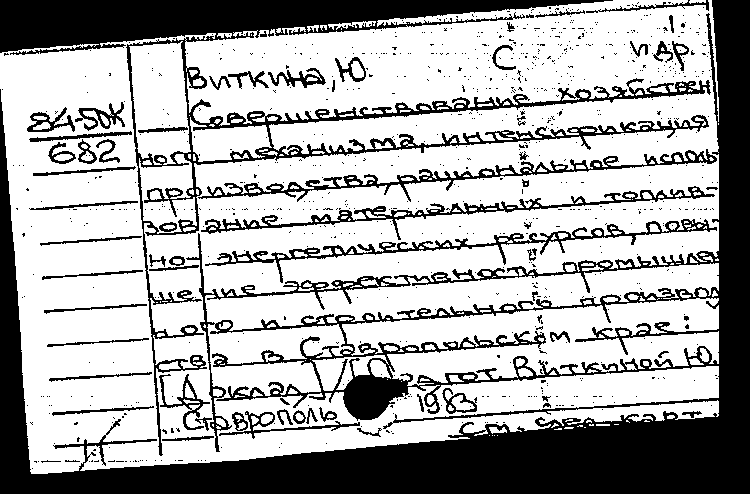 1.
Виткина, Ю. С и др.
84-5ДК
682
Совершенствование хозяйствен
ного механизма, интенсификация
производства, рациональное исполь
зование материальных и топлив-
но-энергетических ресурсов, повы-
шение эффективности промышлен
ного и строительного производ
ства в Ставропольском крае:
[Доклад] / [Подгот. Виткиной Ю.
...Ставрополь 1983
См. след. карт.